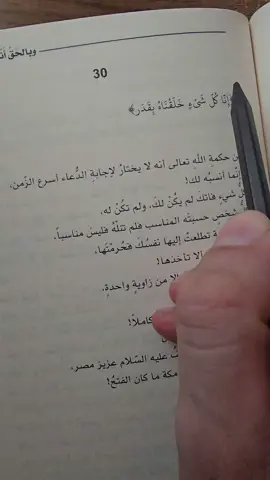 وبالحق
30
إِنَّا كُلَّ شَيْءٍ خَلَقْنَاهُ بِقَدَرٍ﴾
حكمةِ اللهِ تعالى أنه لا يختارُ لإجابةِ الدُّعاء أسرع الزّمن،
إنّما أنسبَه لك!
شيءٍ فاتكَ لم يكُنْ لكَ، ولم تكُنْ له،
شخصٍ حسبتَه المناسب فلم تنَلْهُ فليسَ مناسباً،
تطلعتْ إليها نفسُكَ فحُرمْتَها،
ألا تأخذها!
إلا من زاويةٍ واحدةٍ،
كاملاً!
عليه السّلام عزيز مصر،
مكة ما كان الفتحُ!